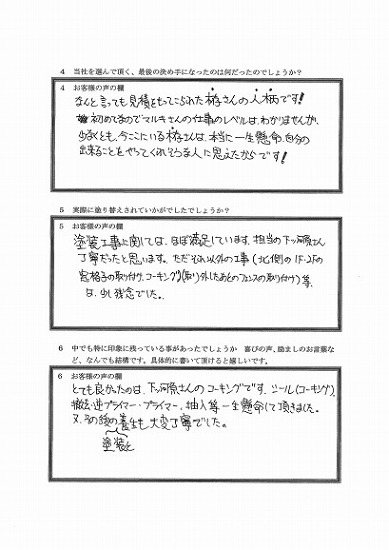 4 当社を選んで頂く、最後の決め手になったのは何だったのでしょうか？
4 お客様の声の欄
なんと言っても見積をもってこられた林さんの人柄です！
初めてなのでマルキさんの仕事のレベルは、わかりませんが、
少なくとも、今ここにいる林さんは、本当に一生懸命、自分の
出来ることをやってくれそうな人に思えたからです！
5 実際に塗り替えされていかがでしたでしょうか？
5 お客様の声の欄
塗装工事に関しては、ほぼ満足しています。担当の下ッ河原さん
丁寧だったと思います。ただそれ以外の工事（北側の1F・2Fの
格子の取り付け、コーキング）取り外したあとのフェンスの取り付け）等
は、少し残念でした。
6 中でも特に印象に残っている事があったでしょうか 喜びの声、励ましのお言葉な
ど、なんでも結構です。具体的に書いて頂けると嬉しいです。
6 お客様の声の欄
とても良かったのは、下ッ河原さんのコーキングです。シール（コーキング）、
撤去・逆プライマー・プライマー、抽入等一生懸命して頂きました。
又、その後の養生も大変丁寧でした。
塗装と